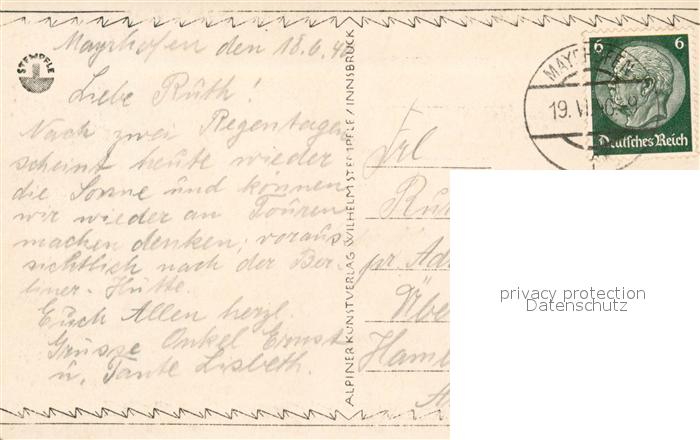 Mayrhofen den 18.6.40
STEMPFLE
Liebe Ruth!
Nach zwei Regentagen
scheint heute wieder
die Sonne und können
wir wieder an Touren
machen denken, voraus-
sichtlich nach der Ber-
liner-Hütte.
Euch Allen herzl.
Grüsse Onkel Ernst
u. Tante Lisbeth.
ALPINER KUNSTVERLAG WILHELM STEMPFLE / INNSBRUCK
6 6
Deutsches Reich
19. VI.
Frl
pr Ad
privacy protection
Datenschutz